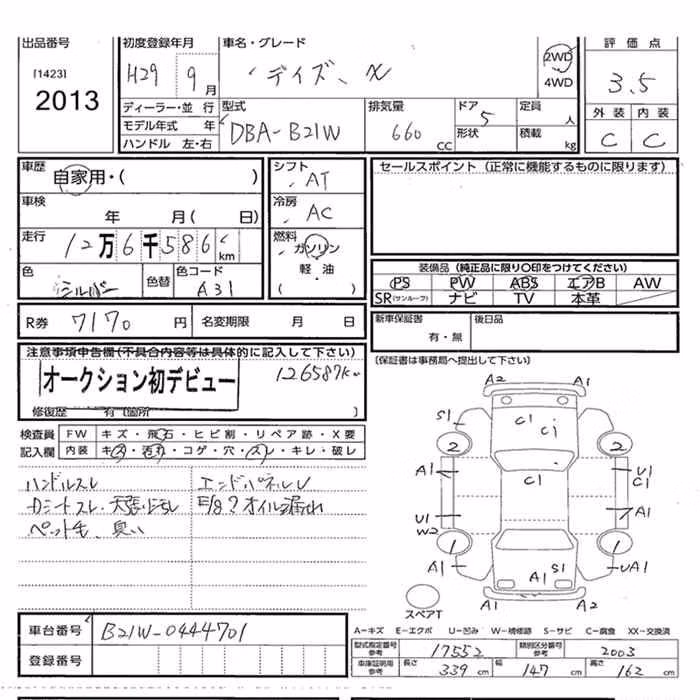 出品番号 初度登録年月 車名・グレード 2WD 4WD 評価点
[1423] 2013 H29 9月 デイズ、X 3.5
ディーラー・並行 型式 排気量 ドア 定員 人 外装 内装
モデル年式 年 DBA-B21W 660 CC 5 形状 積載 kg C C
ハンドル 左・右
車歴 自家用・( ) シフト AT セールスポイント (正常に機能するものに限ります)
車検 年 月( 日) 冷房 AC
走行 12万6千586 km 燃料 ガソリン 軽・油 ( )
色 シルバー 色替 色コード A31
装備品 (純正品に限り〇印をつけてください)
PS PW ABS エアB AW
SR(サンルーフ) ナビ TV 本革
R券 7170円 名変期限 月 日
新車保証書 有・無 後日品
(保証書は事務局へ提出して下さい)
注意事項申告欄(不具合内容等は具体的に記入して下さい)
オークション初デビュー 126587Km
修復歴 有(箇所 )
検査員 FW キズ・飛石・ヒビ割・リペア跡・X要
記入欄 内装 キズ・汚れ・コゲ・穴・スレ・キレ・破レ
ハンドルスレ
シートスレ・天張 ヨゴレ オイル漏れ
ペット毛、臭い
A2 A1
S1 C1 C1
2 2
C1
A1 U1 C1
U1 W2 A1
1 1
A1 S1 A1 UA1
スペアT A1 A2
車台番号 B21W-0444701
登録番号
A-キズ E-エクボ U-凹み W-補修跡 S-サビ C-腐食 XX-交換済
型式指定番号 参考 17552 類別区分番号 参考 2003
車庫証明用 参考 長さ 339 cm 幅 147 cm 高さ 162 cm